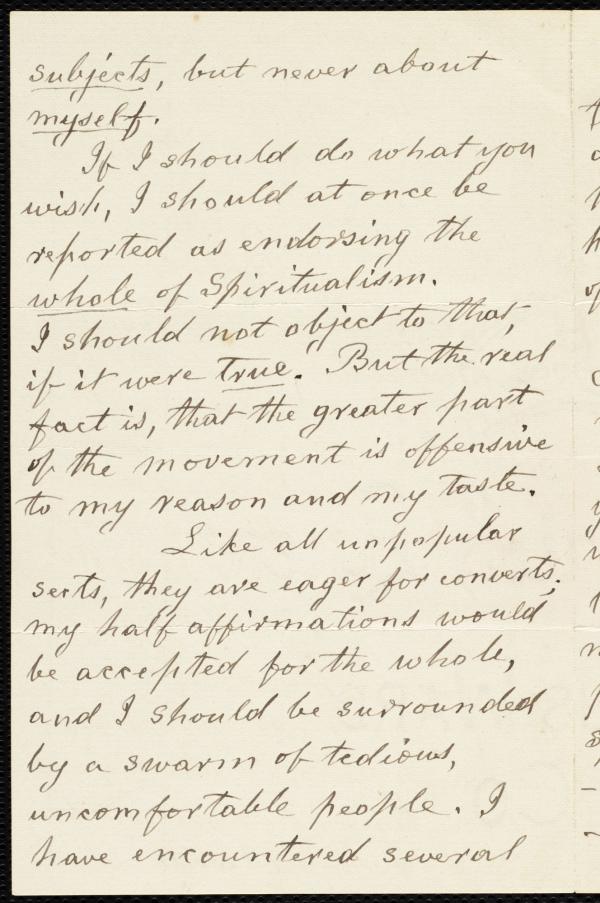 subjects, but never about
myself.
If I should do what you
wish, I should at once be
reported as endorsing the
whole of Spiritualism.
I should not object to that,
if it were true. But the real
fact is, that the greater part
of the movement is offensive
to my reason and my taste.
Like all unpopular
sects, they are eager for converts;
my half affirmations would
be accepted for the whole,
and I should be surrounded
by a swarm of tedious,
uncomfortable people. I
have encountered several